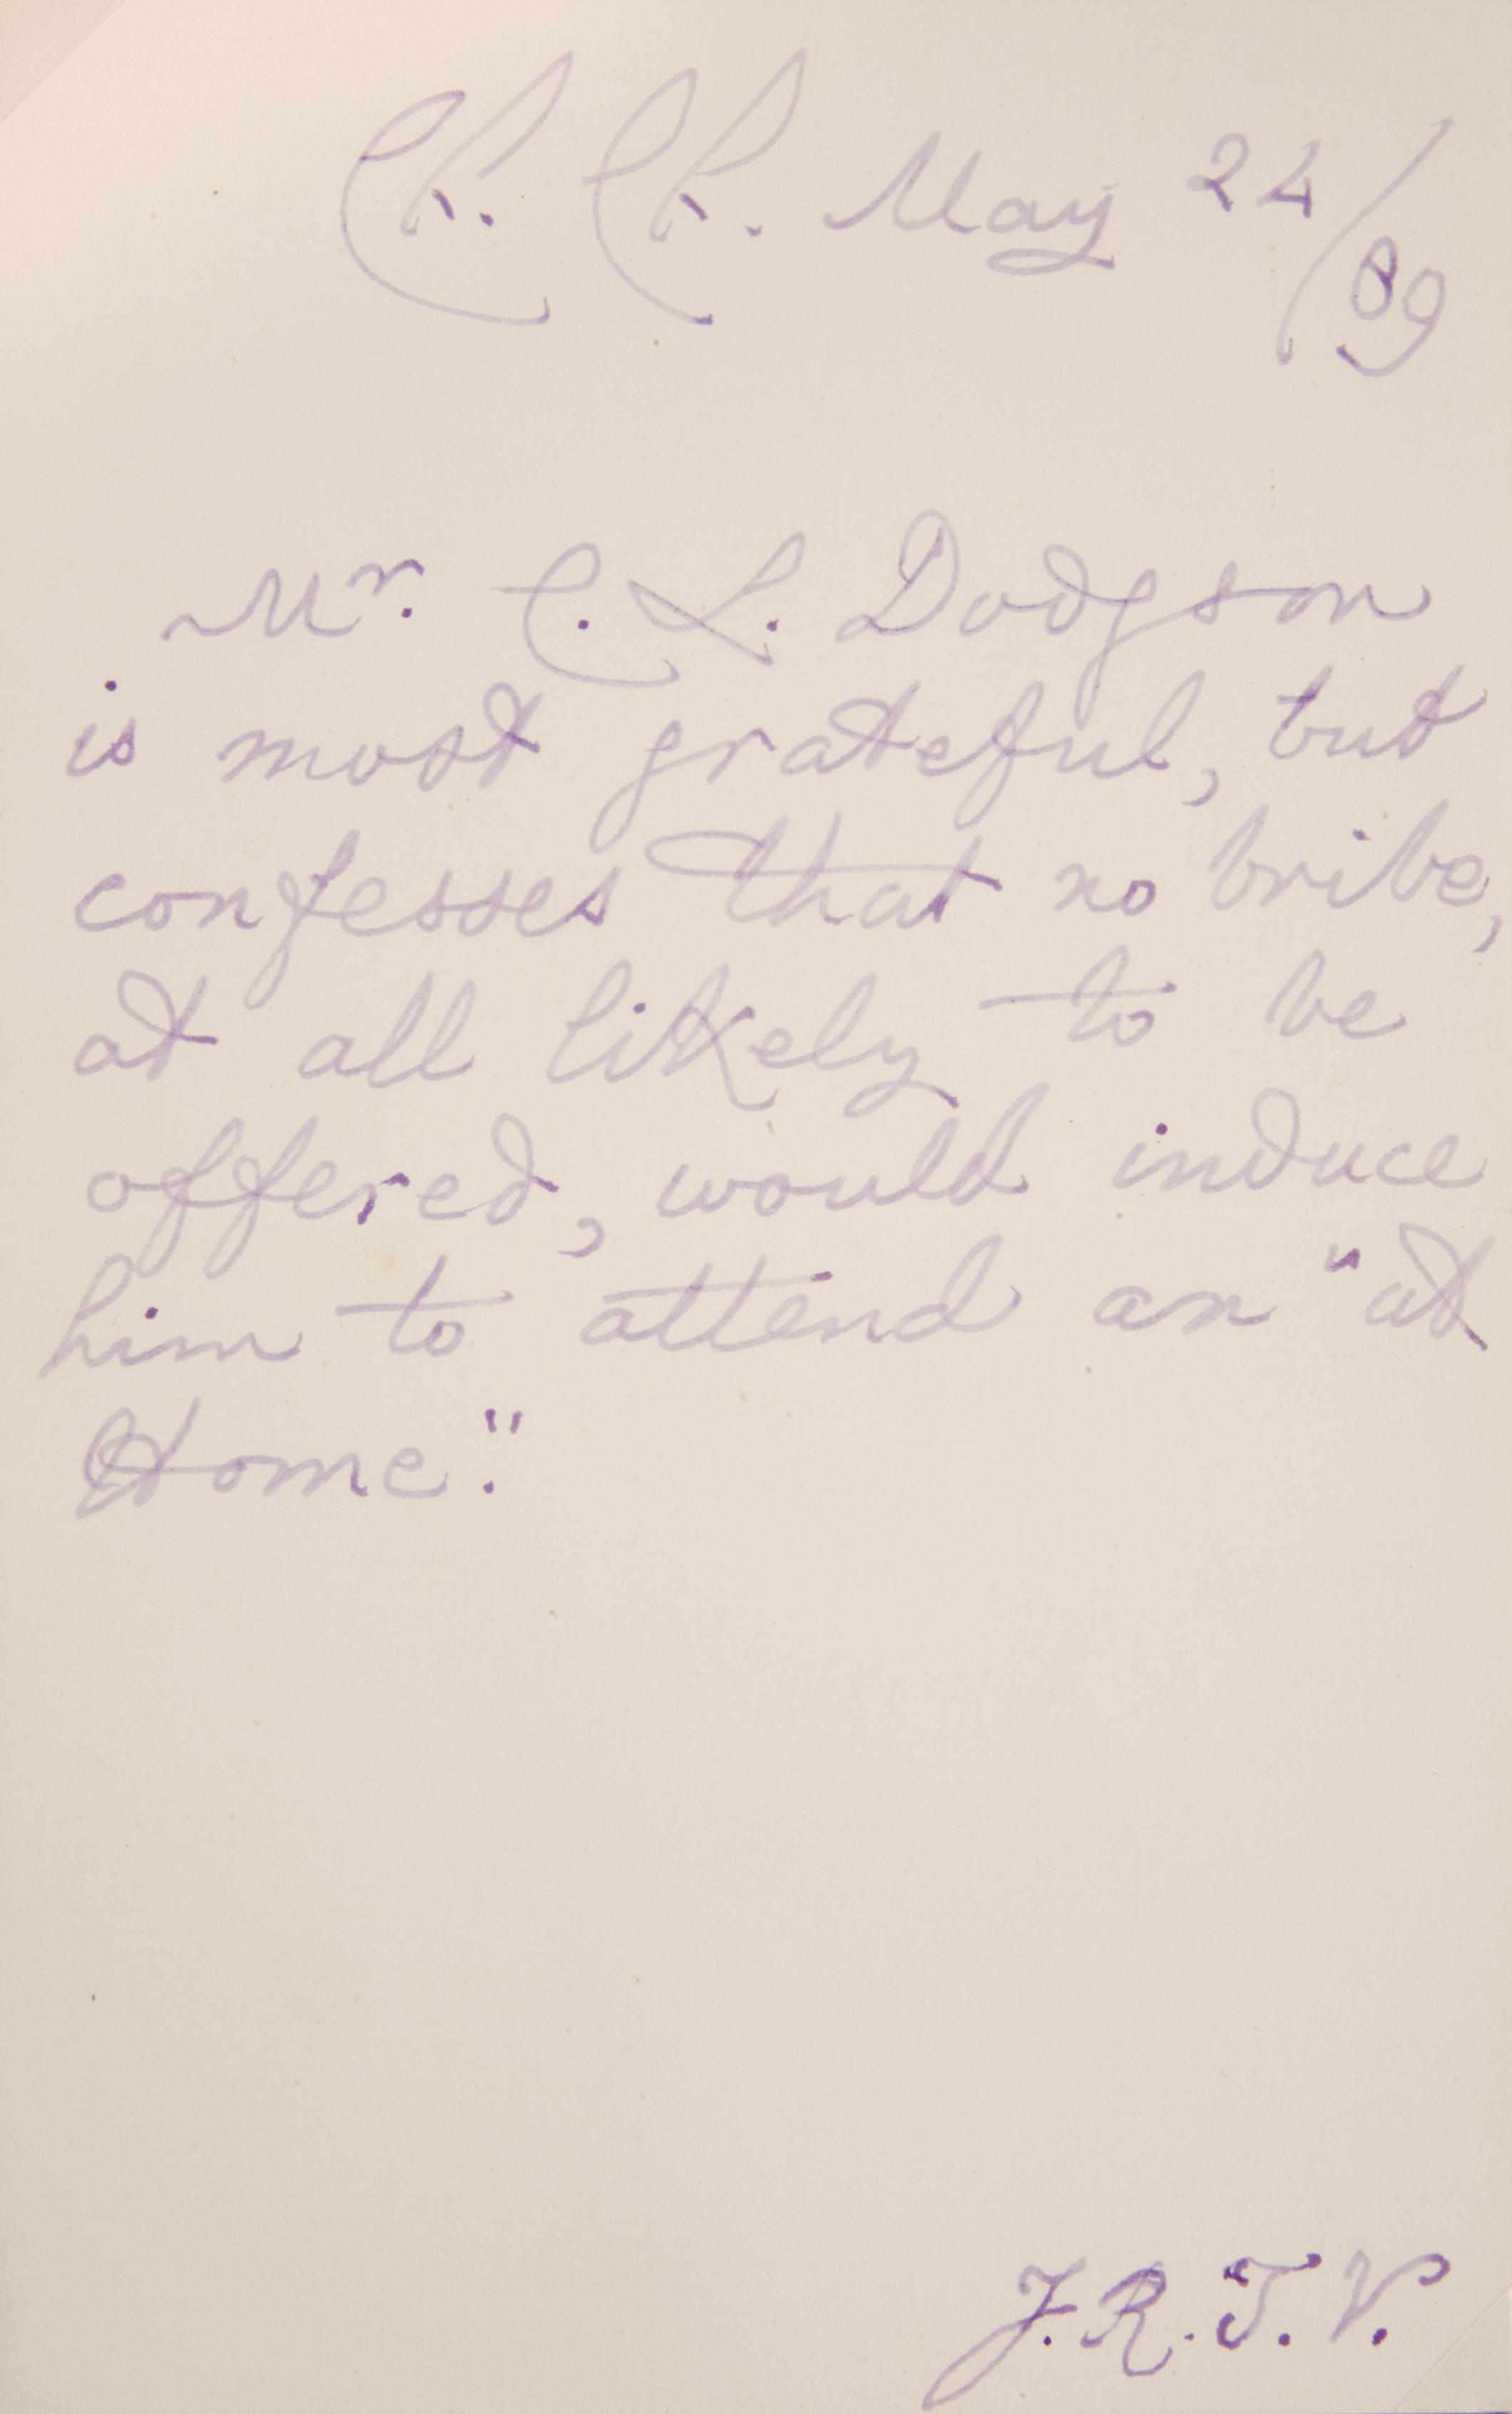 Ch. Ch. May 24/89
Mr. C. L. Dodgson
is most grateful, but
confesses that no bribe,
at all likely to be
offered, would induce
him to attend an "at
Home."
J. R. T. V.